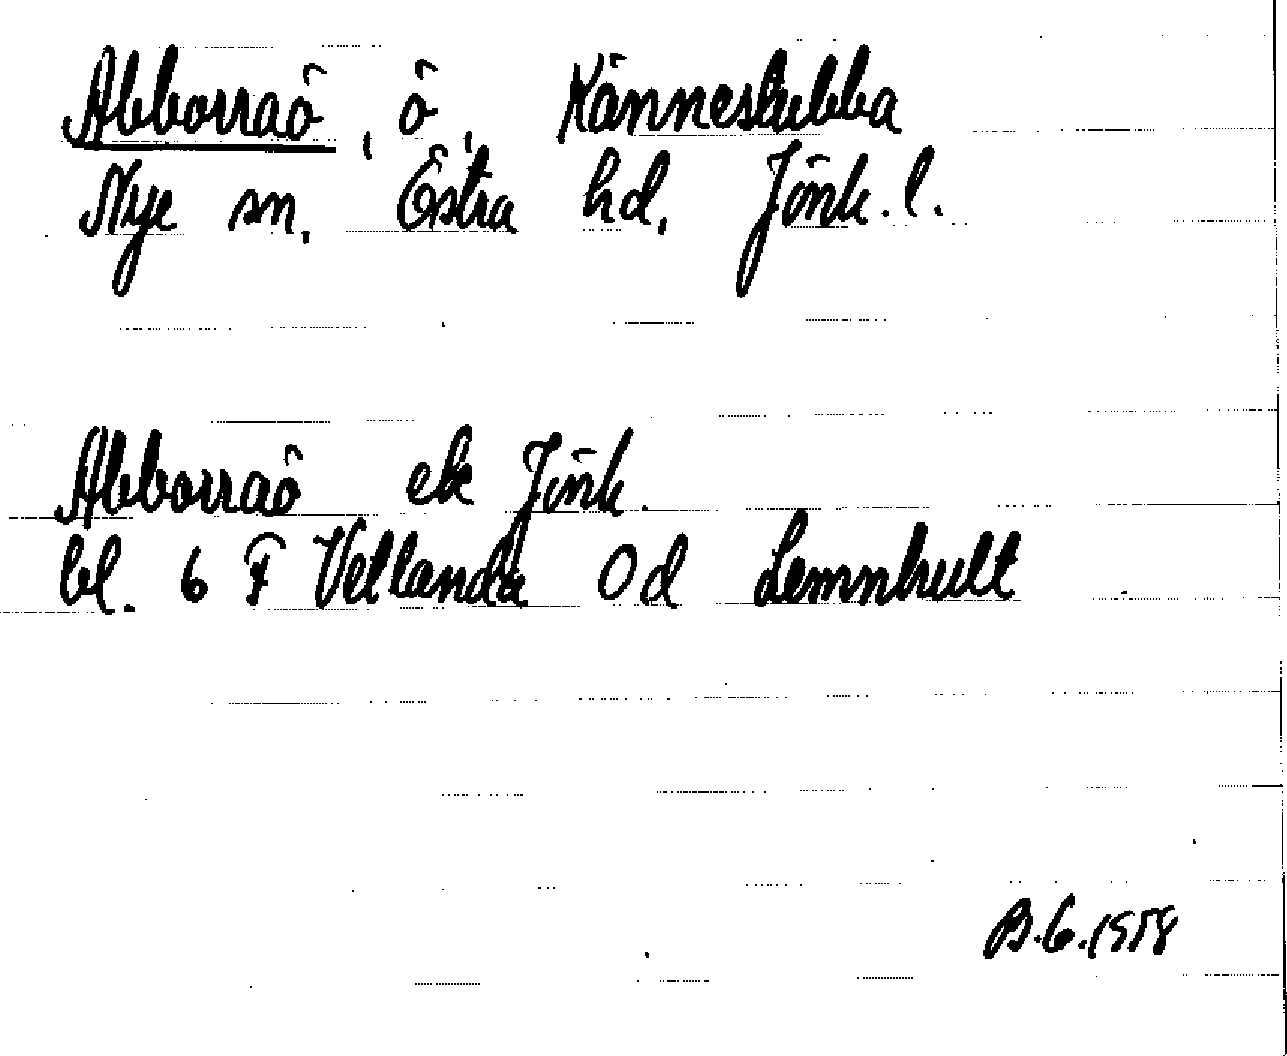 Abborraö, ö, Känneskubba
Nye sn. Östra hd. Jönk. l.
Abborraö ek Jönk.
bl. 6 F Vetlanda Od Lemnhult
B.G. 1958